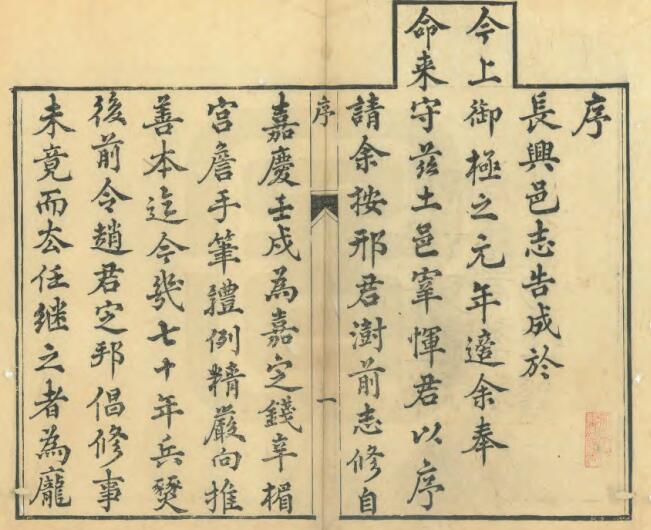 序
長興邑志告成於
今上御極之元年適余奉
命来守茲土邑宰惲君以序
請余按邢君澍前志修自
序
一
嘉慶壬戌為嘉定錢辛楣
宮詹手筆體例精嚴向推
善本迄今幾七十年兵燹
後前令趙君定邦倡修事
未竟而去任繼之者為龐